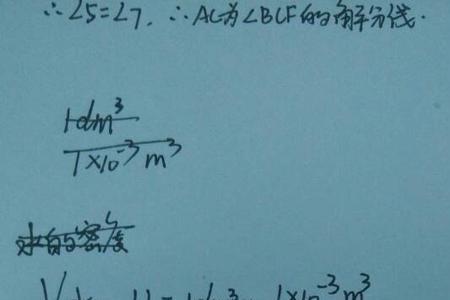 ∴∠5=∠7. ∴AC为∠BCF的角平分线.
1dm³
1×10⁻³m³
水的密度
= 1dm³ = 1×10⁻³m³